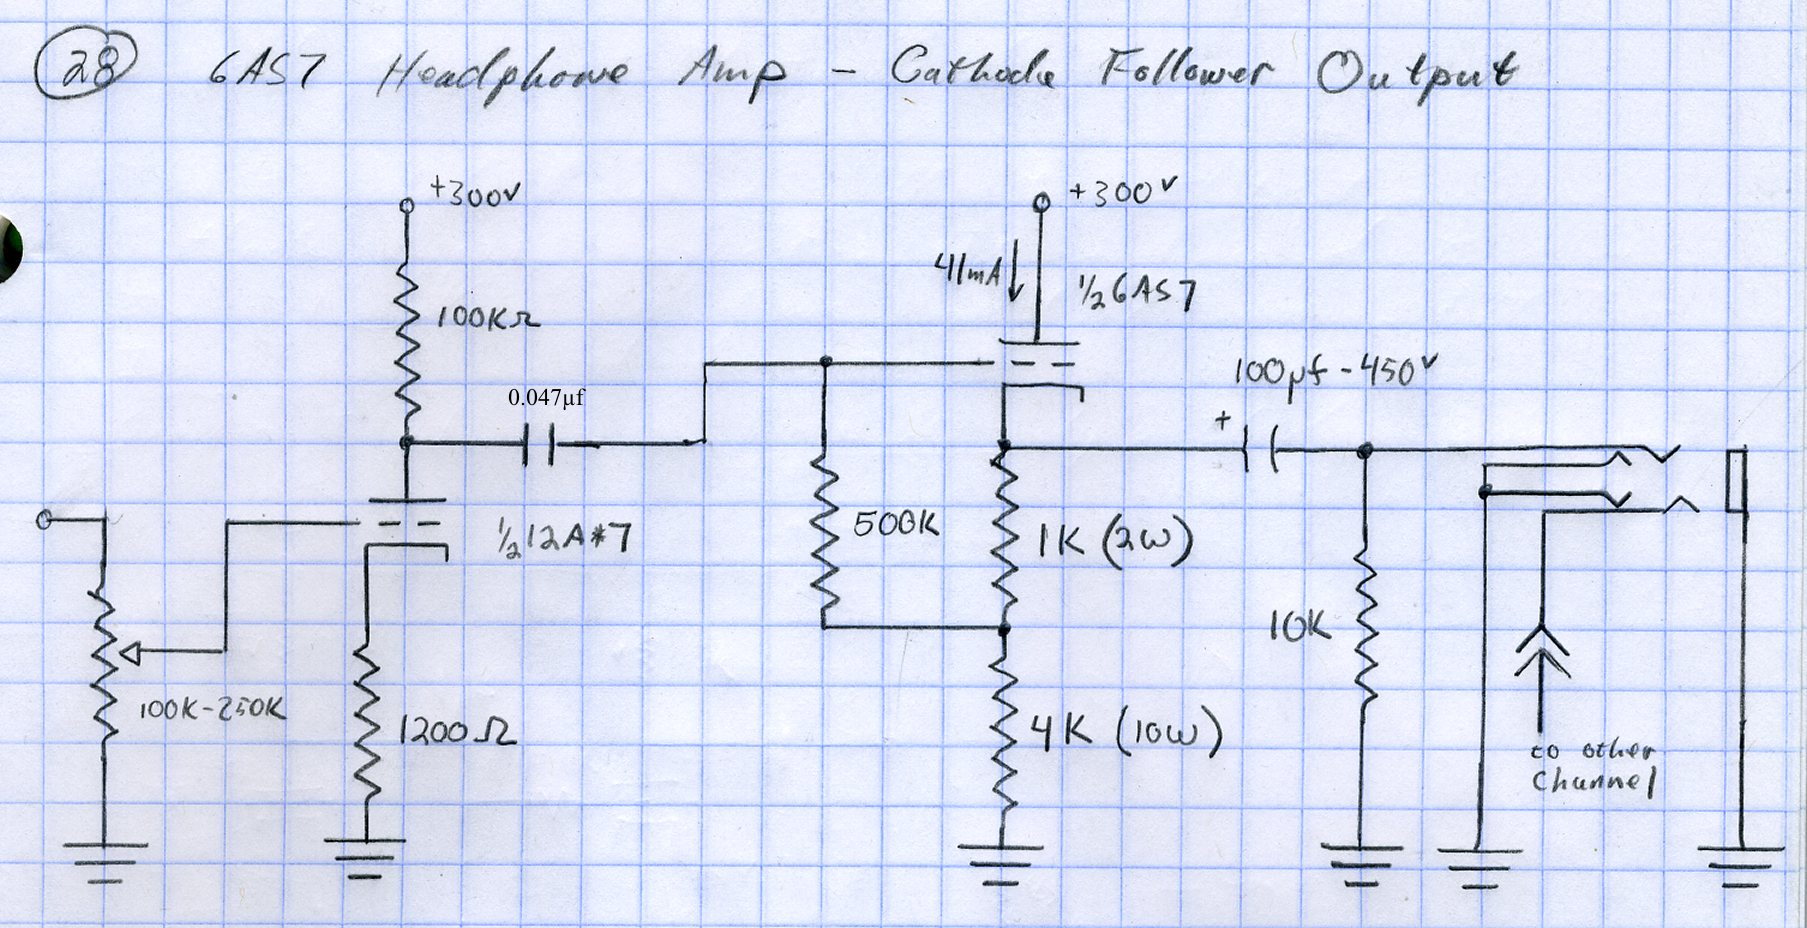 28 6AS7 Headphone Amp - Cathode Follower Output
+300v
+300v
41mA
1/2 6AS7
100KΩ
0.047µf
100µf-450v
+
1/2 12A*7
500K
1K (2W)
10K
100K-250K
1200Ω
4K (10W)
to other
Channel